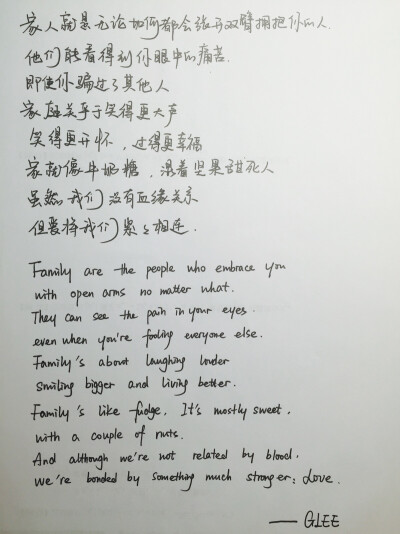 家人就是无论如何都会张开双臂拥抱你的人.
他们能看得到你眼中的痛苦.
即使你骗过了其他人
家庭关乎于笑得更大声
笑得更开怀，过得更幸福
家就像牛奶糖，混着坚果甜死人
虽然我们没有血缘关系
但爱将我们紧紧相连.
Family are the people who embrace you
with open arms no matter what.
They can see the pain in your eyes.
even when you're fooling everyone else.
Family's about laughing louder
smiling bigger and living better.
Family's like fudge. It's mostly sweet.
with a couple of nuts.
And although we're not related by blood.
we're bonded by something much stronger: Love.
—— GLEE